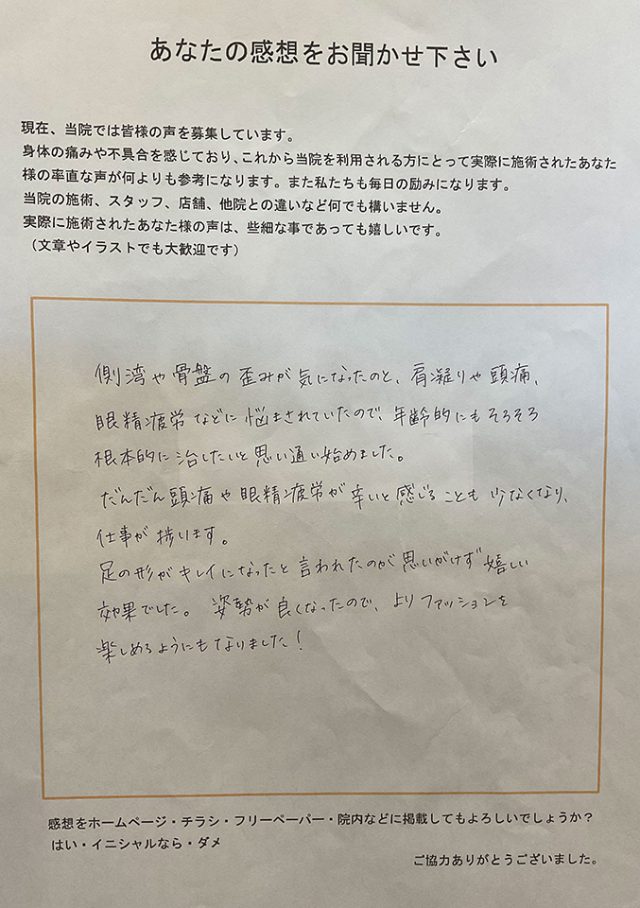 あなたの感想をお聞かせ下さい
現在、当院では皆様の声を募集しています。
身体の痛みや不具合を感じており、これから当院を利用される方にとって実際に施術されたあなた
様の率直な声が何よりも参考になります。また私たちも毎日の励みになります。
当院の施術、スタッフ、店舗、他院との違いなど何でも構いません。
実際に施術されたあなた様の声は、些細な事であっても嬉しいです。
（文章やイラストでも大歓迎です）
側湾や骨盤の歪みが気になったのと、肩凝りや頭痛、
眼精疲労などに悩まされていたので、年齢的にもそろそろ
根本的に治したいと思い通い始めました。
だんだん頭痛や眼精疲労が辛いと感じることも少なくなり、
仕事が捗ります。
足の形がキレイになったと言われたのが思いがけず嬉しい
効果でした。姿勢が良くなったので、よりファッションを
楽しめるようにもなりました！
感想をホームページ・チラシ・フリーペーパー・院内などに掲載してもよろしいでしょうか？
はい・イニシャルなら・ダメ
ご協力ありがとうございました。